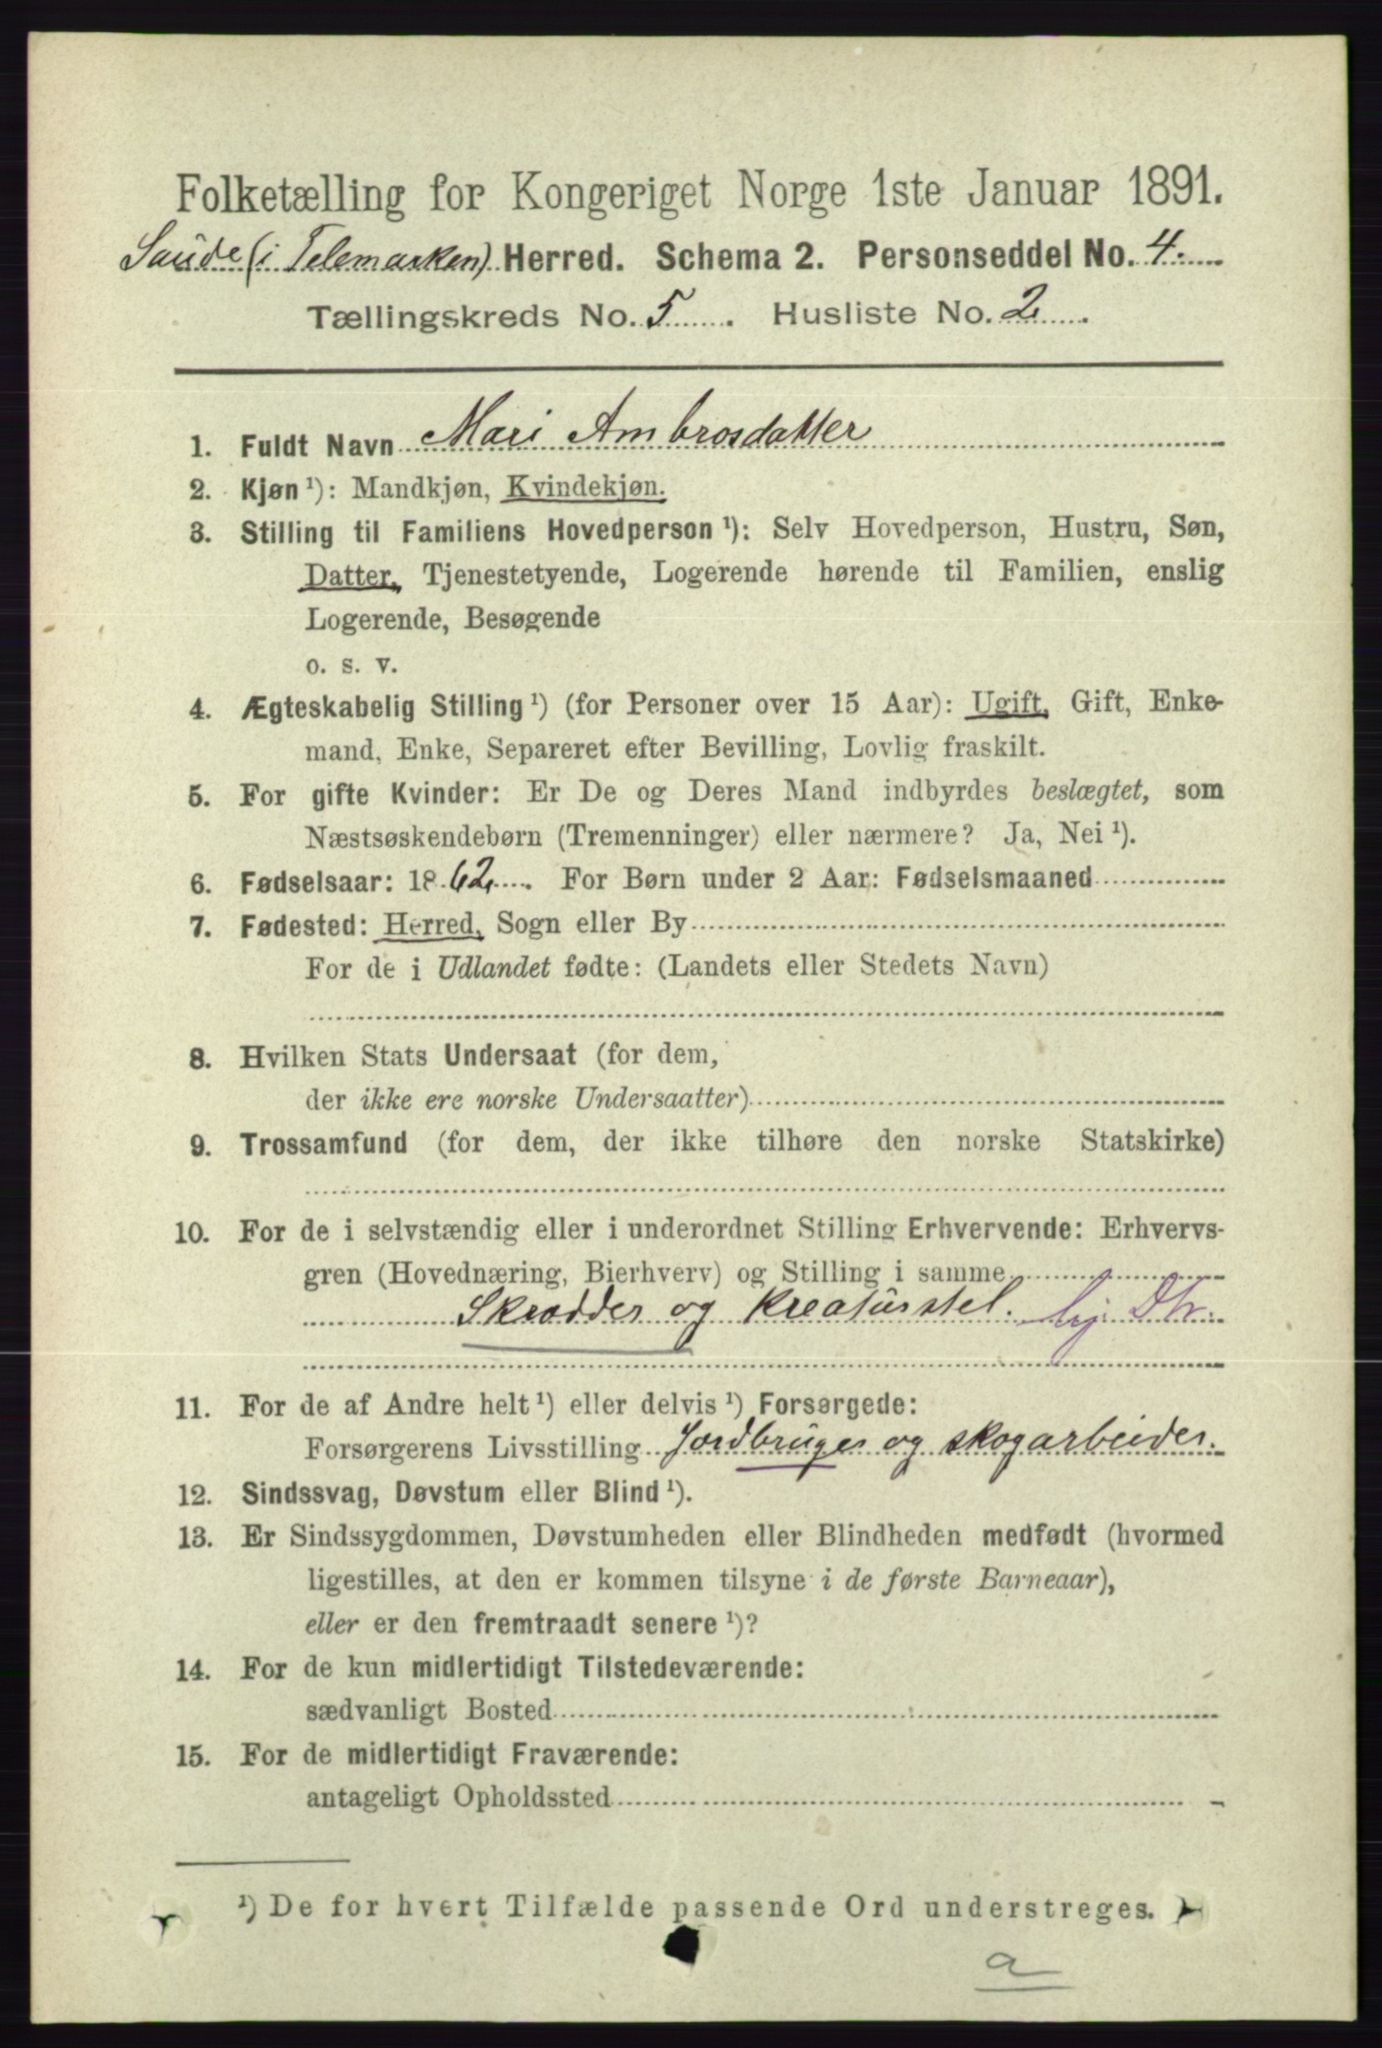 Folketælling for Kongeriget Norge 1ste Januar 1891.
Saude (i Telemarken) Herred. Schema 2. Personseddel No. 4.
Tællingskreds No. 5. Husliste No. 2.
1. Fuldt Navn Mari Ambrosdatter
2. Kjøn ¹): Mandkjøn, Kvindekjøn.
3. Stilling til Familiens Hovedperson ¹): Selv Hovedperson, Hustru, Søn,
Datter, Tjenestetyende, Logerende hørende til Familien, enslig
Logerende, Besøgende
o. s. v.
4. Ægteskabelig Stilling ¹) (for Personer over 15 Aar): Ugift, Gift, Enke-
mand, Enke, Separeret efter Bevilling, Lovlig fraskilt.
5. For gifte Kvinder: Er De og Deres Mand indbyrdes beslægtet, som
Næstsøskendebørn (Tremenninger) eller nærmere? Ja, Nei ¹).
6. Fødselsaar: 1862. For Børn under 2 Aar: Fødselsmaaned
7. Fødested: Herred, Sogn eller By
For de i Udlandet fødte: (Landets eller Stedets Navn)
8. Hvilken Stats Undersaat (for dem,
der ikke ere norske Undersaatter)
9. Trossamfund (for dem, der ikke tilhøre den norske Statskirke)
10. For de i selvstændig eller i underordnet Stilling Erhvervende: Erhvervs-
gren (Hovednæring, Bierhverv) og Stilling i samme
Skrædder og Kreaturstel. hj. Dtr.
11. For de af Andre helt ¹) eller delvis ¹) Forsørgede:
Forsørgerens Livsstilling Jordbruger og skogarbeider.
12. Sindssvag, Døvstum eller Blind ¹).
13. Er Sindssygdommen, Døvstumheden eller Blindheden medfødt (hvormed
ligestilles, at den er kommen tilsyne i de første Barneaar),
eller er den fremtraadt senere ¹)?
14. For de kun midlertidigt Tilstedeværende:
sædvanligt Bosted
15. For de midlertidigt Fraværende:
antageligt Opholdssted
¹) De for hvert Tilfælde passende Ord understreges.
a